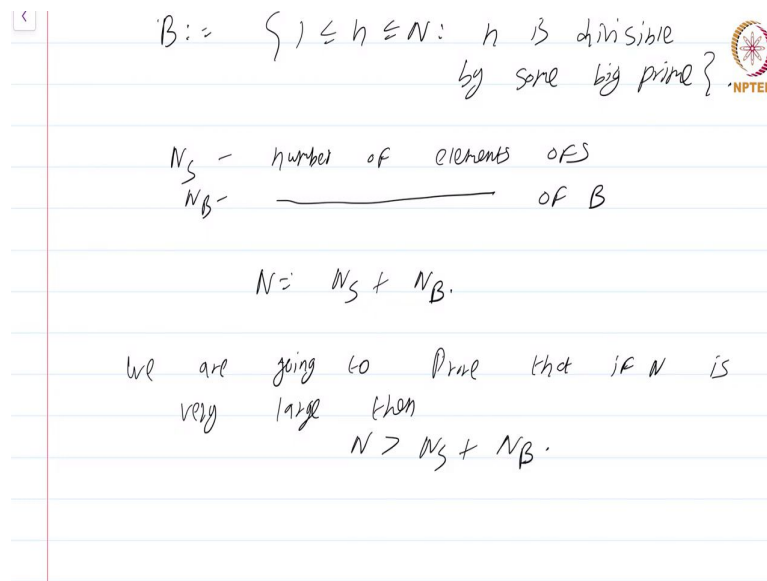 B := { 1 ≤ n ≤ N : n is divisible
by some big prime }.
NPTEL
N_S - number of elements of S
N_B - ———— of B
N = N_S + N_B.
We are going to prove that if N is
very large then
N > N_S + N_B.